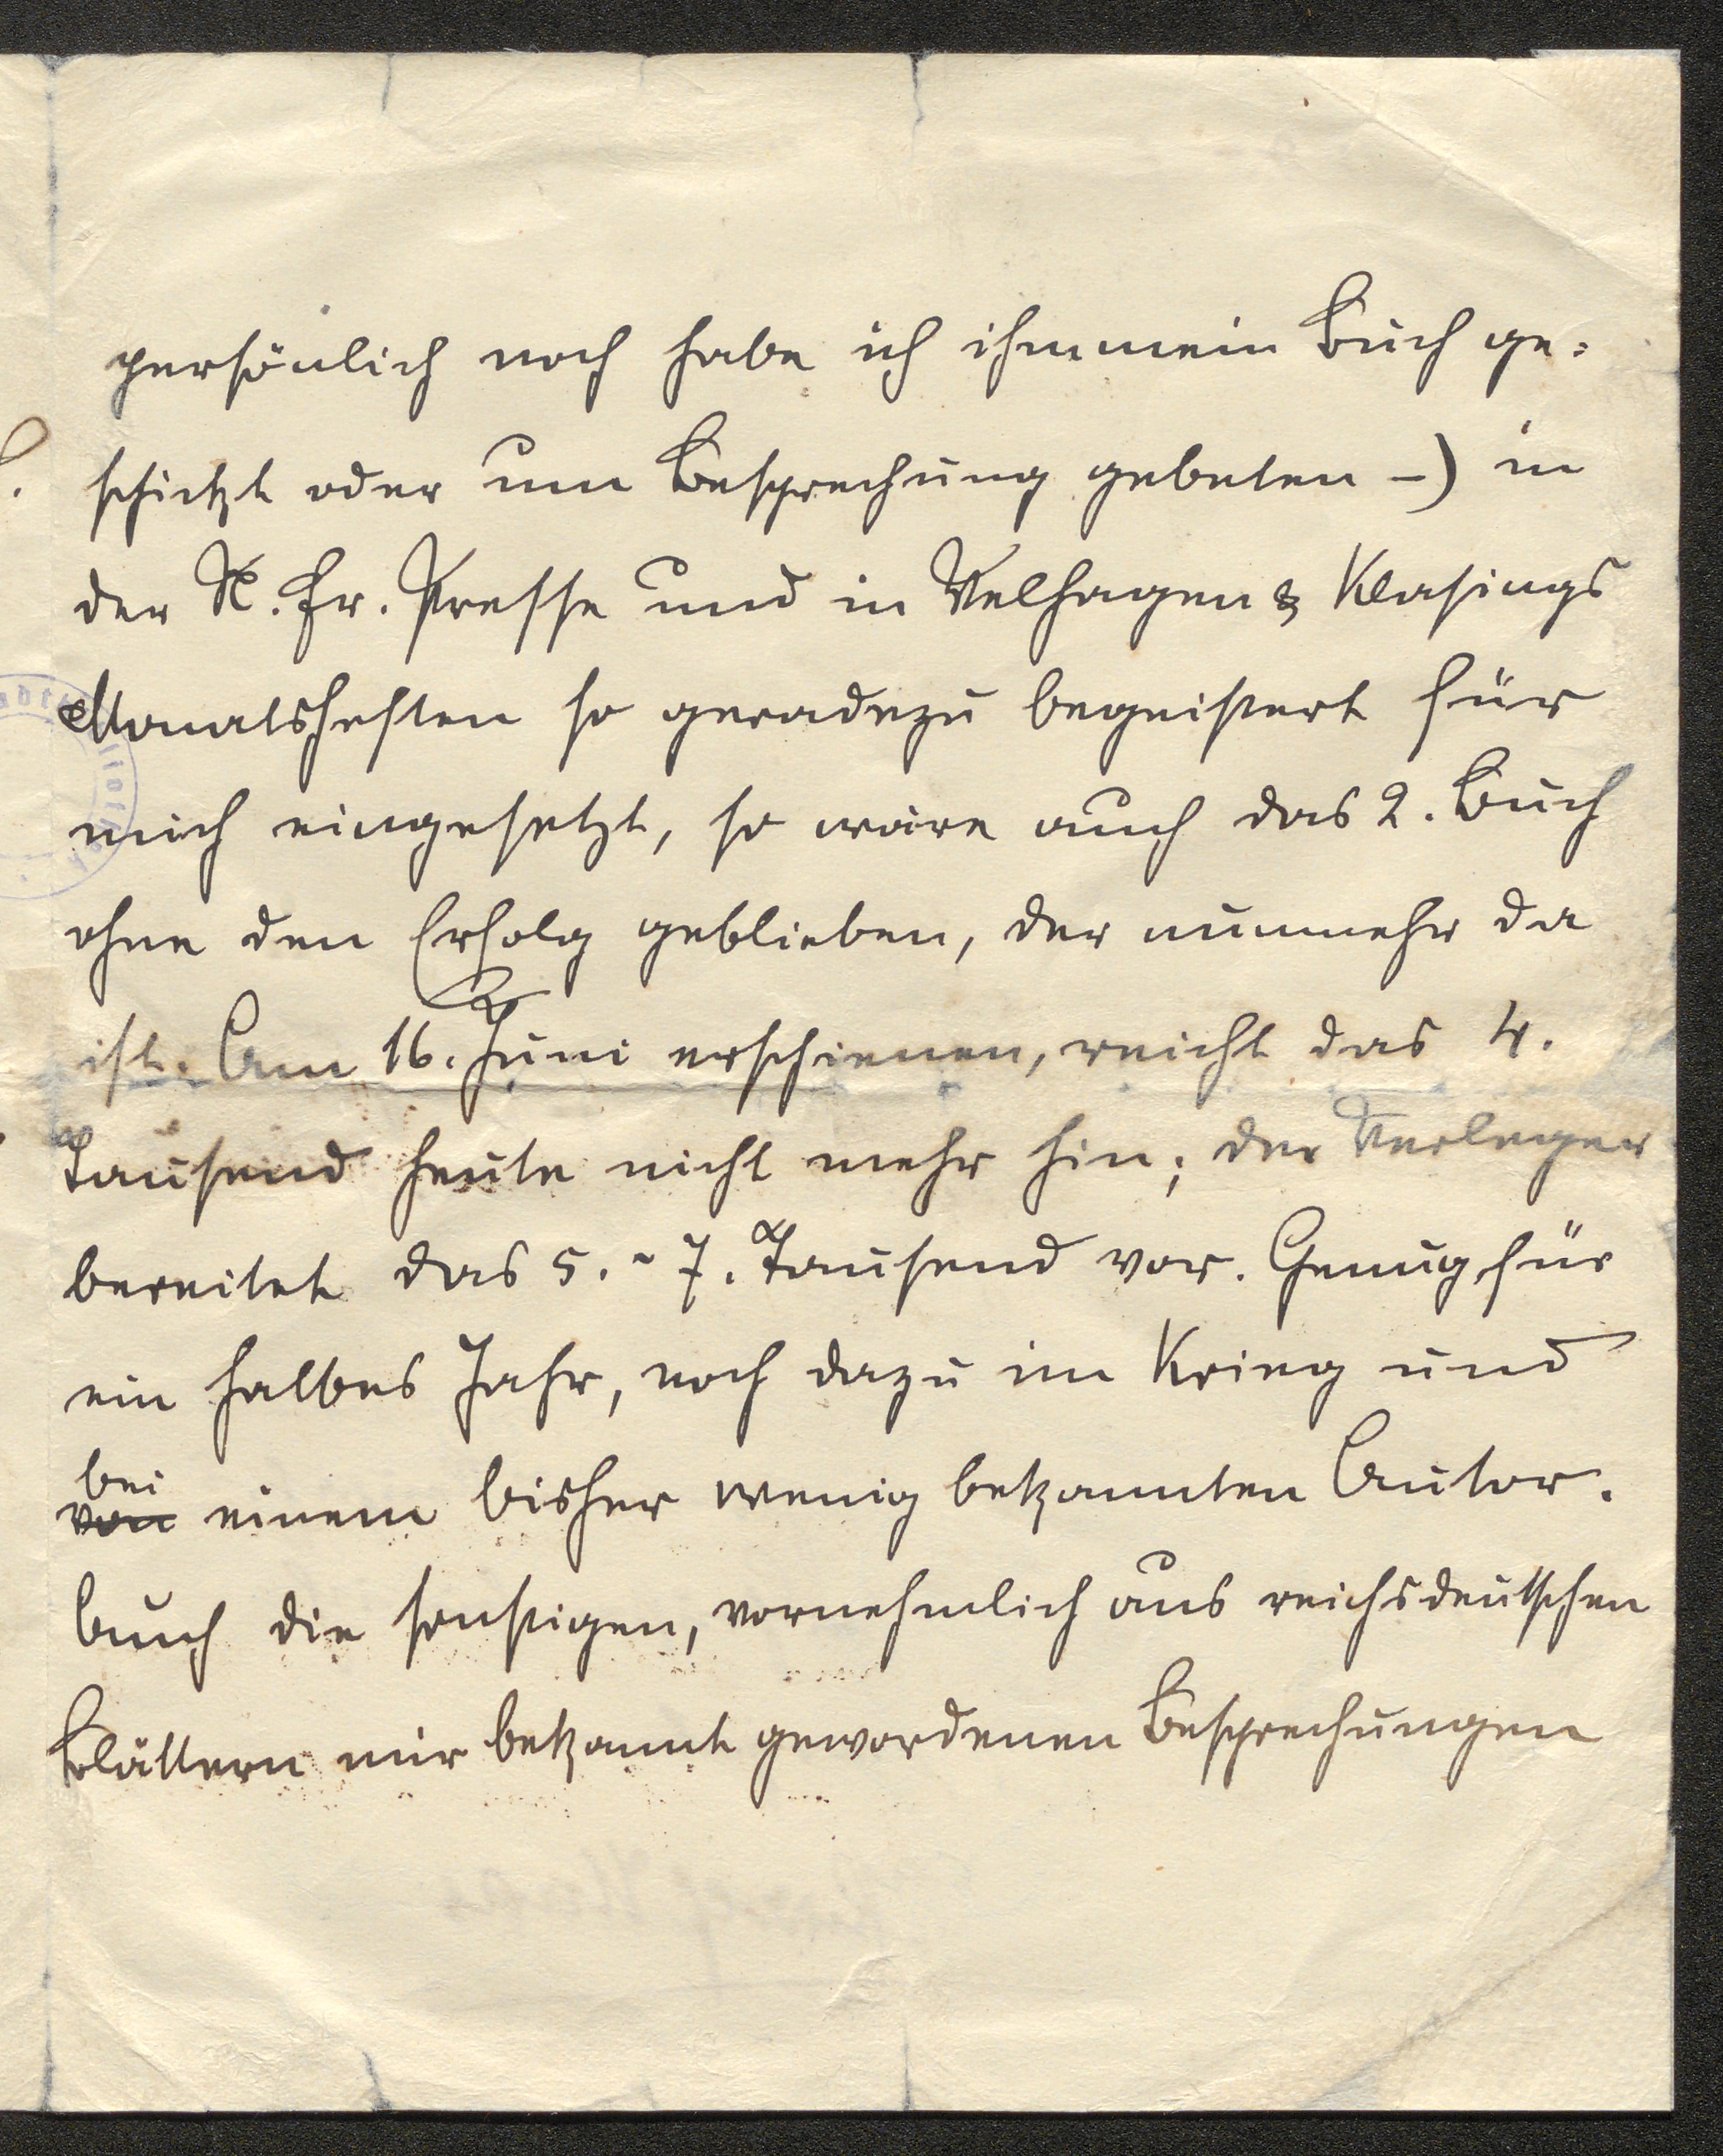 persönlich noch habe ich ihm mein Buch ge-
schickt oder um Besprechung gebeten -) in
der N. Fr. Presse und in Velhagen & Klasings
Monatsheften so geradezu begeistert für
mich eingesetzt, so wäre auch das 2. Buch
ohne den Erfolg geblieben, der nunmehr da
ist. Am 16. Juni erschienen, reicht das 4.
Tausend heute nicht mehr hin; der Verleger
bereitet das 5. - 7. Tausend vor. Genug für
ein halbes Jahr, noch dazu im Krieg und
bei
von einem bisher wenig bekannten Autor.
Auch die sonstigen, vornehmlich aus reichsdeutschen
Blättern mir bekannt gewordenen Besprechungen